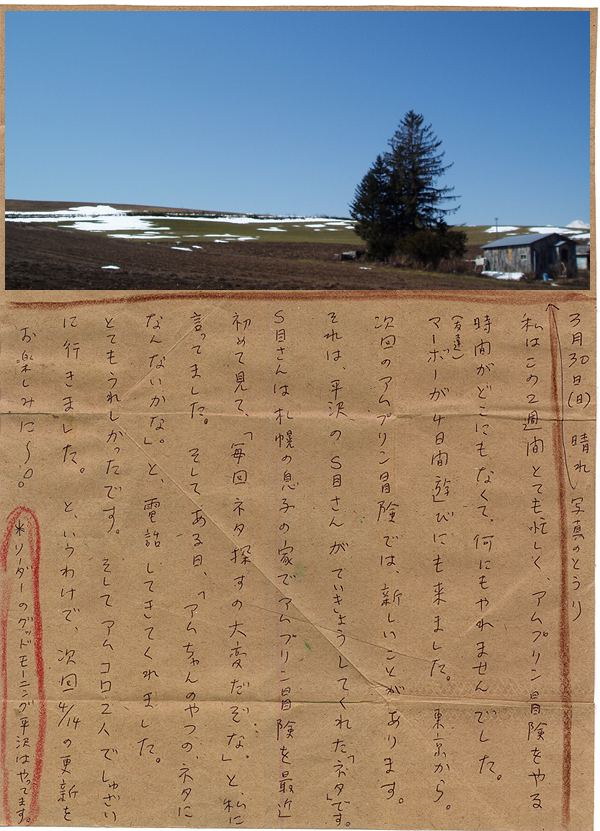 3月30日(日) 晴れ 写真のとうり
私はこの2週間とても忙しく、アムプリン冒険をやる
時間がどこにもなくて、何にもやれませんでした。
(友達)
マーボーが4日間遊びにも来ました。東京から。
次回のアムプリン冒険では、新しいことがあります。
それは、平沢のS目さんがていきょうしてくれた「ネタ」です。
S目さんは札幌の息子の家でアムプリン冒険を最近
初めて見て、「毎回ネタ探すの大変だぞな。」と、私に
言ってました。そしてある日、「アムちゃんのやつの、ネタに
なんないかな」。と、電話してきてくれました。
とてもうれしかったです。そしてアムコロ2人でしゅざい
に行きました。と、いうわけで、次回4/14の更新を
お楽しみに〜♪。
*リーダーのグッドモーニング平沢はやってます。